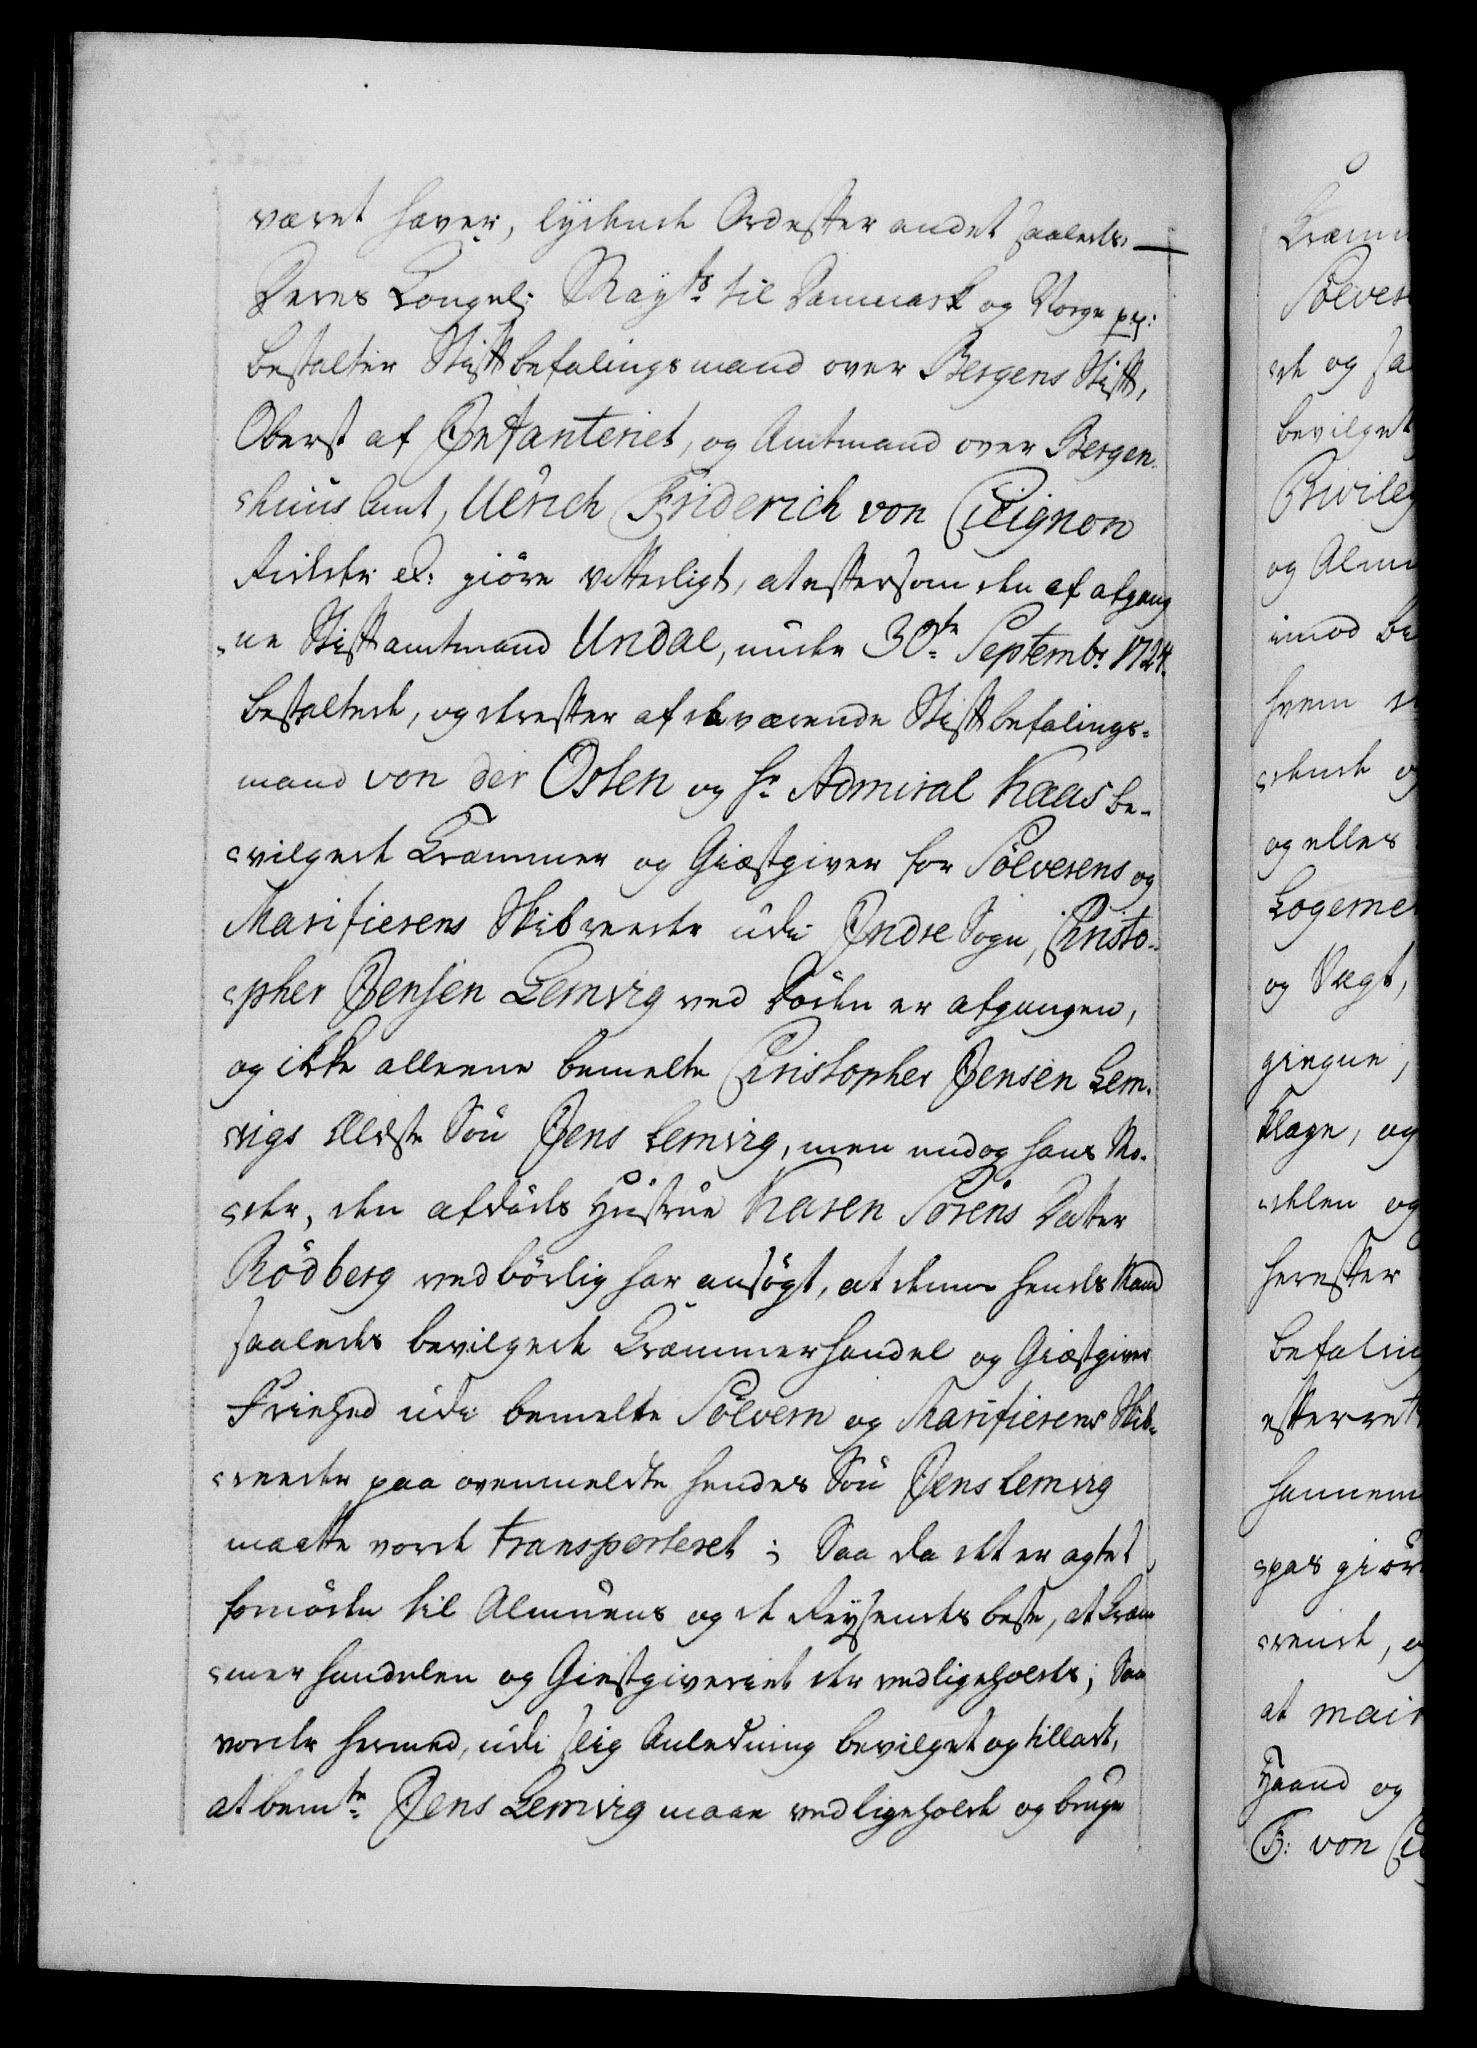 været haver, lydende Ord efter andet saaledes. —
Deres Kongel: Mayts til Danmark og Norge pp:
bestalter Stiftbefalingsmand over Bergens Stift,
Oberst af Infanteriet, og Amtmand over Bergen-
huus Amt, Ulrich Friderich von Cicignon
Ridder &: giöre vitterligt, at eftersom den af afgang
ne Stiftamtmand Undal, under 30te Septembr 1724.
bestaltede, og derefter af daværende Stiftbefalings-
mand von der Osten og Hr Admiral Kaas be-
vilgede Kræmmer og Giæstgiver for Sölverens og
Marifierens Skibreede udi Indre Sogn, Christo-
pher Jensen Lemvig ved Döden er afgangen,
og ikke alleene bemelte Christopher Jensen Lem-
vigs Ældste Sön Jens Lemvig, men endog hans Mo-
der, den afdöds Hustrue Karen Sörens Datter
Rödberg vedbörlig har ansögt, at denne hendes Mand
saaledes bevilgede Kræmmerhandel og Giæstgiver
Friehed udi bemelte Sölvern og Marifierens Skib-
reede paa ovenmeldte hendes Sön Jens Lemvig
maatte vorde transporteret; Saa da det er agtet
fornöden til Almuens og de Reysendes beste, at Kræm
mer handelen og Giestgiveriet der vedligeholdes; Saa
vorder hermed, udi slig Anledning bevilget og tilladt,
at bemte Jens Lemvig maae vedligeholde og bruge
Kræmm
Sölver
de og sa
bevilget
Privileg
og Almu
imod be
hvem s
dende o
og elles
Logeme
og Vægt,
giegne,
klage, og
delen og
herefter
befaling
efterret
hannem
pas giör
rende, o
at main
Haand og
F: von Ci